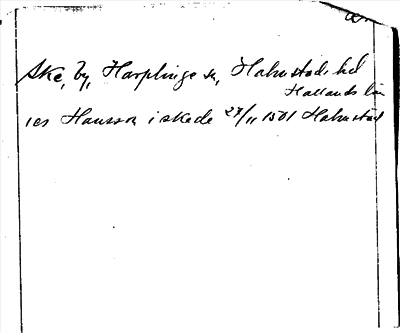 Ske, by, Harplinge sn, Halmstads hd
Hallands län
ies Hansson i skede 27/11 1501 Halmstad